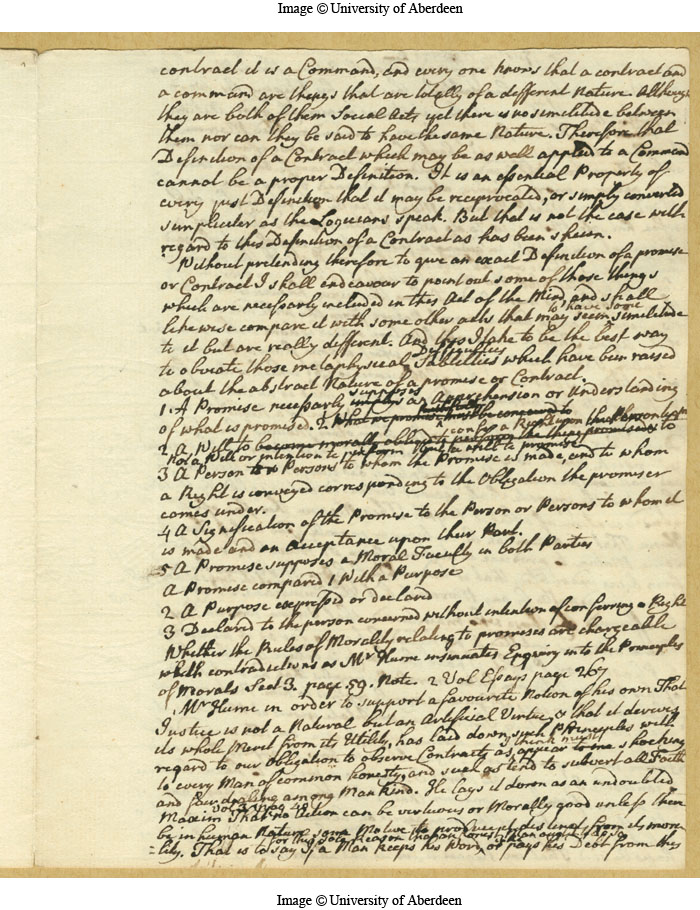 Image © University of Aberdeen
contract it is a Command, and every one knows that a contract and
a command are things that are totally of a different Nature. Although
they are both of them Social Acts yet there is no similitude between
them nor can they be said to have the same Nature. Therefore that
Definition of a Contract which may be as well applied to a Command
cannot be a proper Definition. It is an essential Property of
every just Definition that it may be reciprocated, or simply converted
simpliciter as the Logicians speak. But that is not the case with
regard to this Definition of a Contract as has been shewn.
Without pretending therefore to give an exact Definition of a promise
or Contract I shall endeavour to point out some of those things
which are necessarly included in this Act of the Mind, and shall
likewise compare it with some other acts that may seem similitude
to have some
to it but are really different. And this I take to be the best way
to obviate those metaphysical Subtleties which have been raised
Difficulties
about the abstract Nature of a promise or Contract.
1. A Promise necessarly implys an Apprehension or Understanding
supposes
of what is promised. 2 What we promise must be conceived to
2 A Will to become morally obliged to perform the thing promised to
confer a Right upon the Person
Not a Will or intention to perform but a will to promise
3 A Person or Persons to whom the Promise is made and to whom
a Right is conveyed corresponding to the Obligation the promiser
comes under.
4 A Signification of the Promise to the Person or Persons to whom it
is made and an acceptance upon their Part.
5 A Promise supposes a Moral Faculty in both Parties
A Promise compared 1 With a Purpose
2 A Purpose expressed or declard
3 Declard to the person concerned without intention of conferring a Right
Whether the Rules of Morality relating to promises are chargeable
with contradictions as Mr Hume insinuates Enquiry into the Principles
of Morals Sect 3. page 59. Note. 2 Vol Essays page 267
Mr Hume in order to support a favourite Notion of his own That
Justice is not a Natural but an Artificial Virtue, & that it derives
its whole Merit from its Utility, has laid down such Principles with
regard to our Obligation to observe Contracts as appear to me shocking
I think must
to every Man of common honesty, and such as tend to subvert all Faith
and fair dealing among Mankind. He lays it down as an undoubted
Maxim That no Action can be virtuous or Morally good unless there
be in human Nature some Motive to produce it distinct from its mora-
lity. That is to say If a Man keeps his Word, or pays his Debt from this
Image © University of Aberdeen